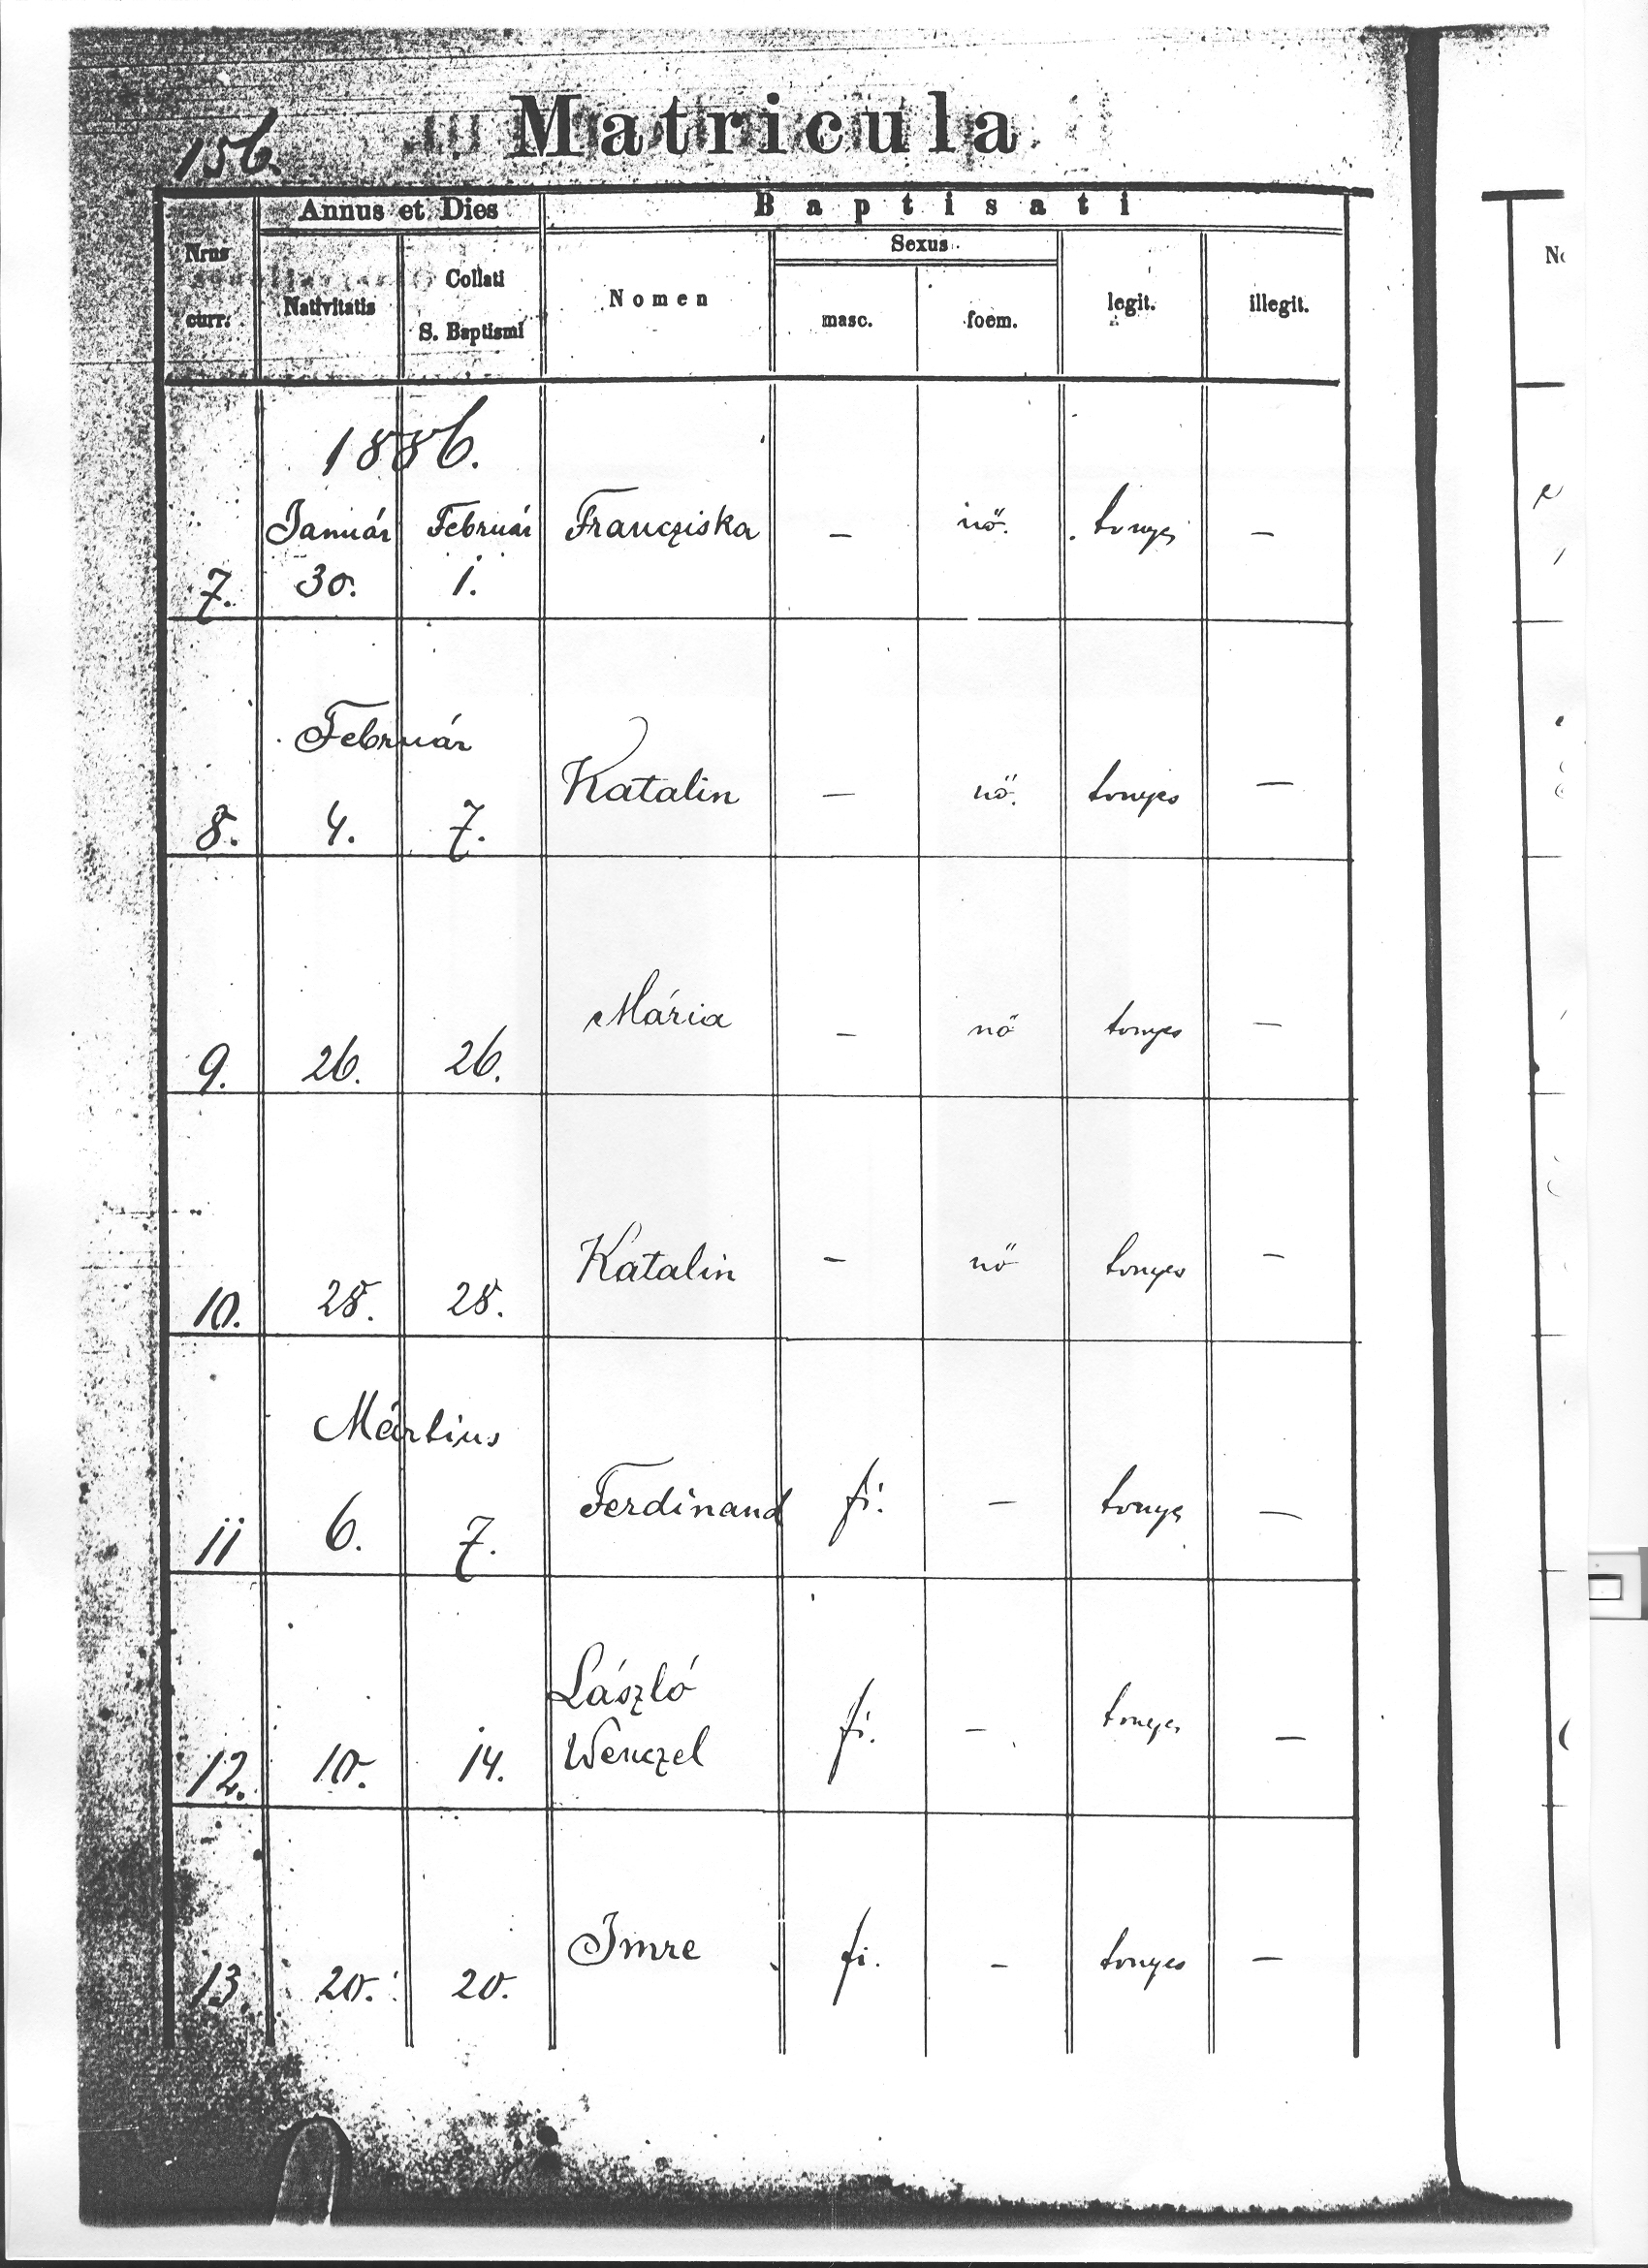 156.
Matricula
Annus et Dies
Baptisati
Nrus
curr.
Nativitatis
Collati
S. Baptismi
Nomen
Sexus
masc.
foem.
legit.
illegit.
1886.
Január Február Francziska — nő. —
7. 30. 1.
Február
Katalin — nő. —
8. 4. 7.
Mária — nő —
9. 26. 26.
Katalin — nő —
10. 28. 28.
Mártius
Ferdinand fi. — —
11 6. 7.
László
Wenczel fi. — —
12. 10. 14.
Imre fi. — —
13. 20. 20.